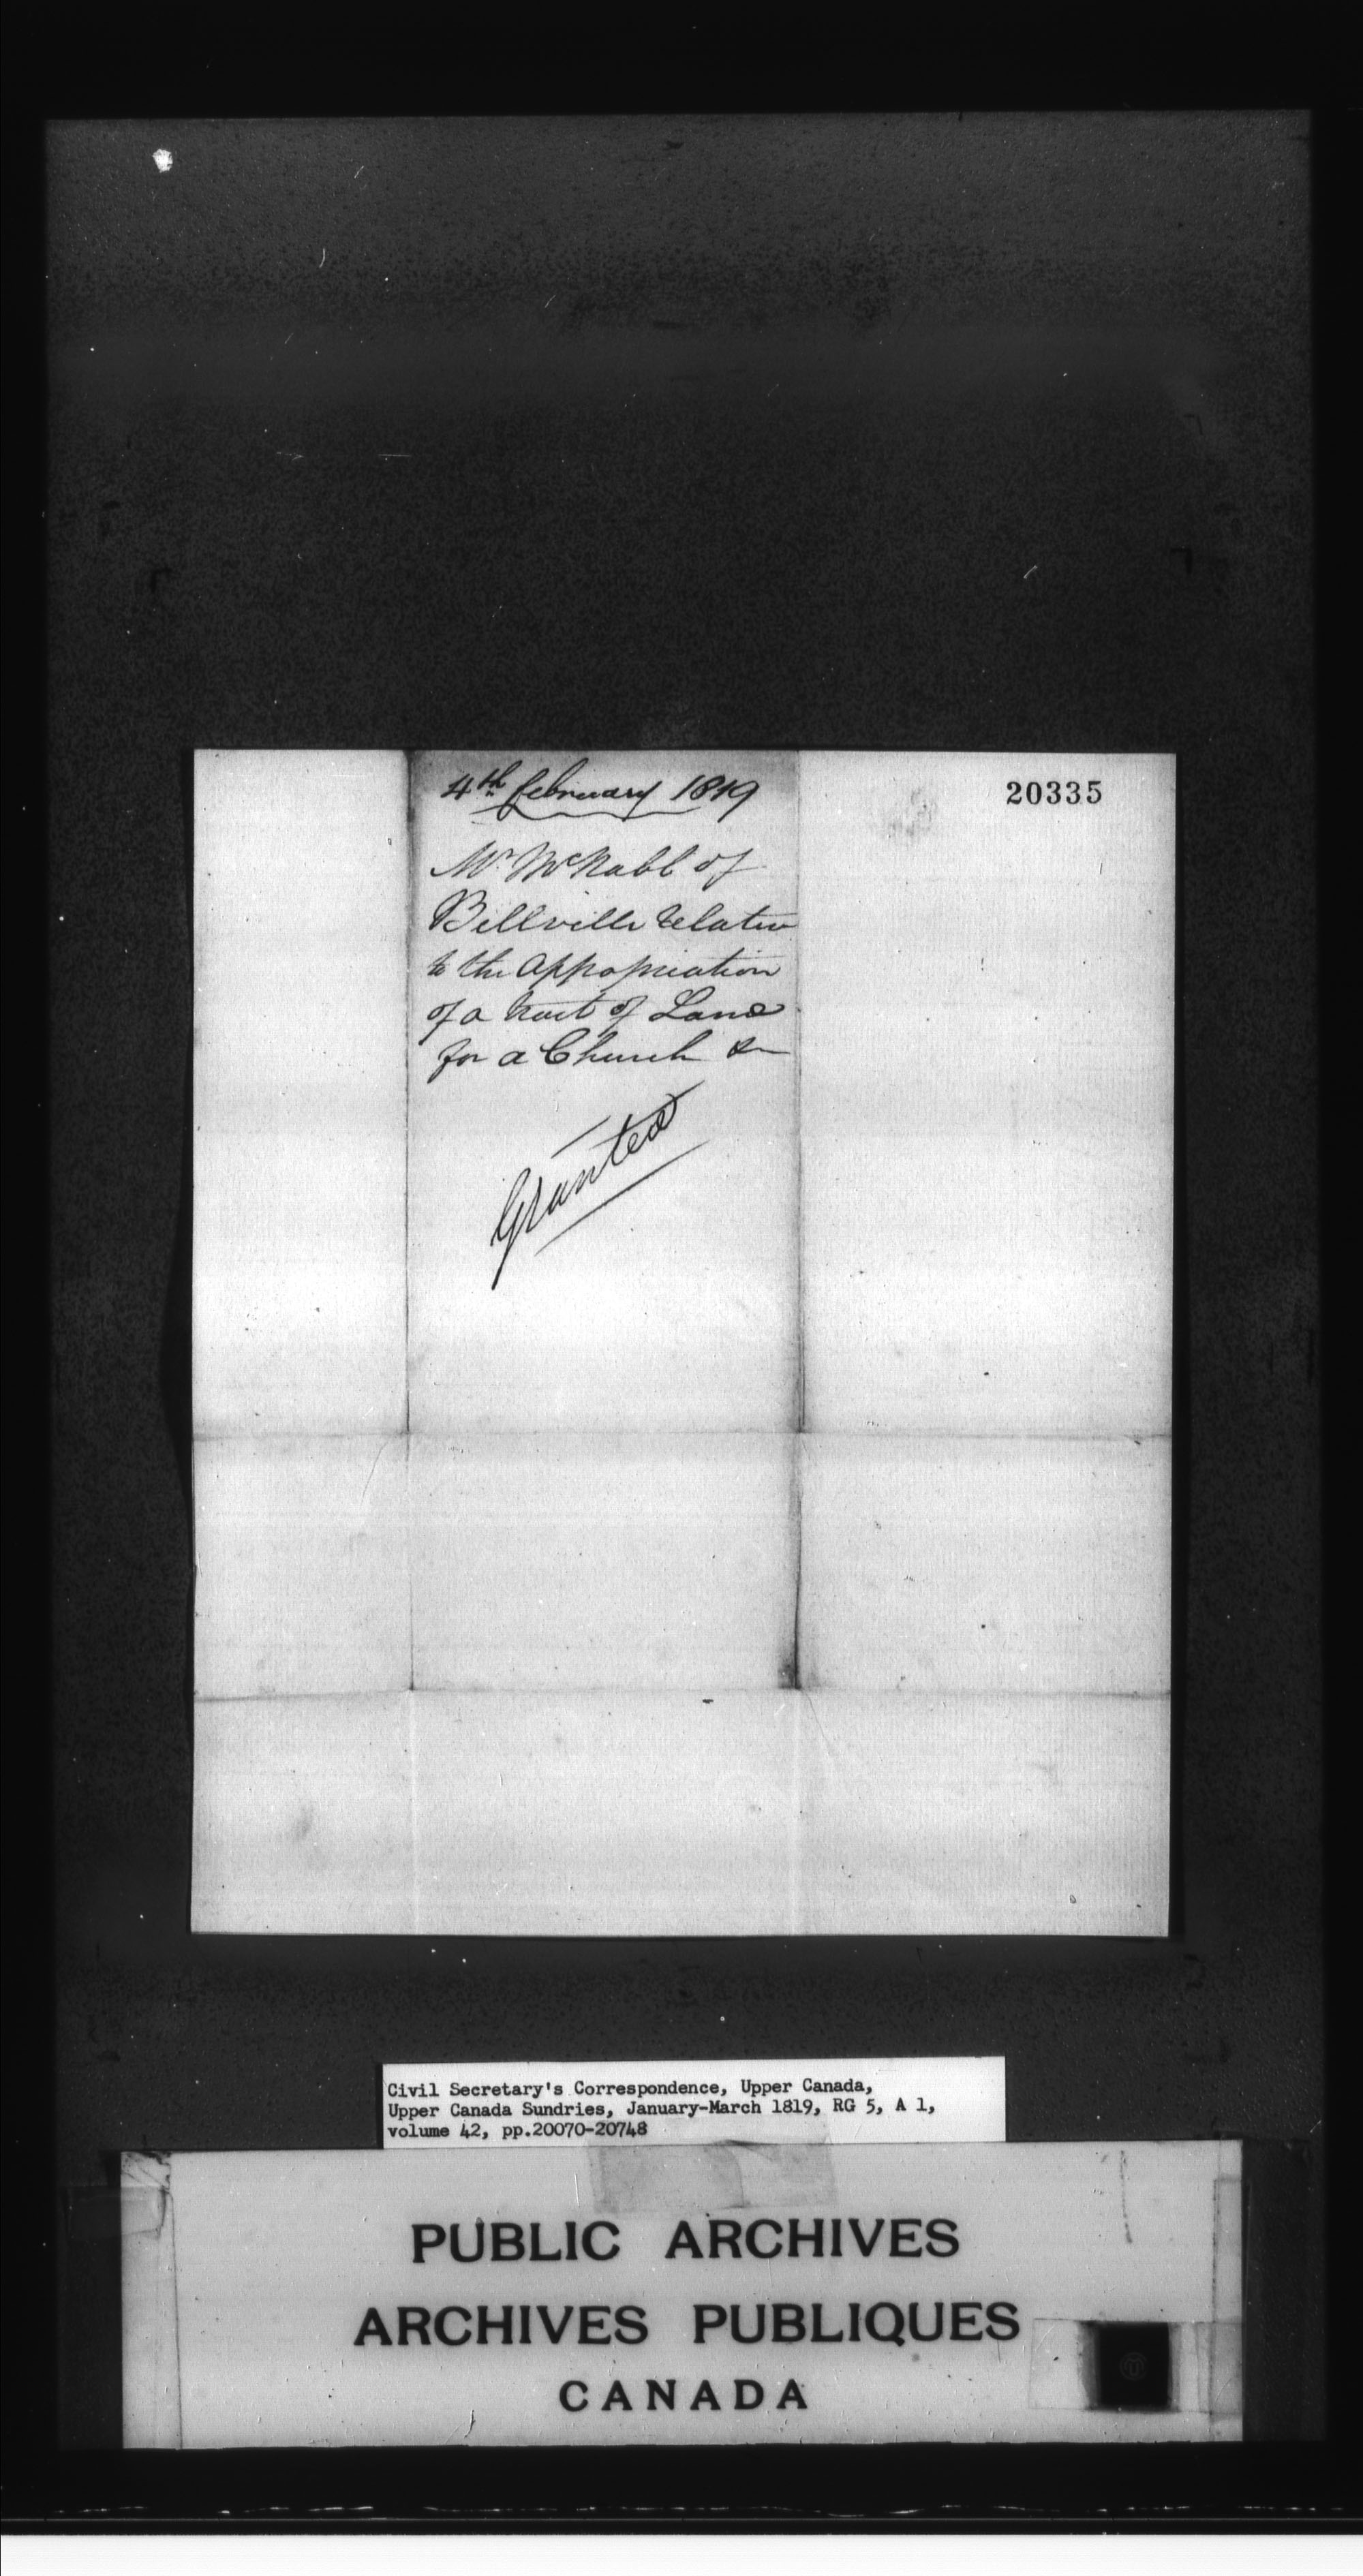 4th February 1819
20335
Mr. McNabb of
Bellville relative
to the Appropriation
of a tract of Land
for a Church &c
Granted
Civil Secretary's Correspondence, Upper Canada,
Upper Canada Sundries, January-March 1819, RG 5, A 1,
volume 42, pp.20070-20748
PUBLIC ARCHIVES
ARCHIVES PUBLIQUES
CANADA